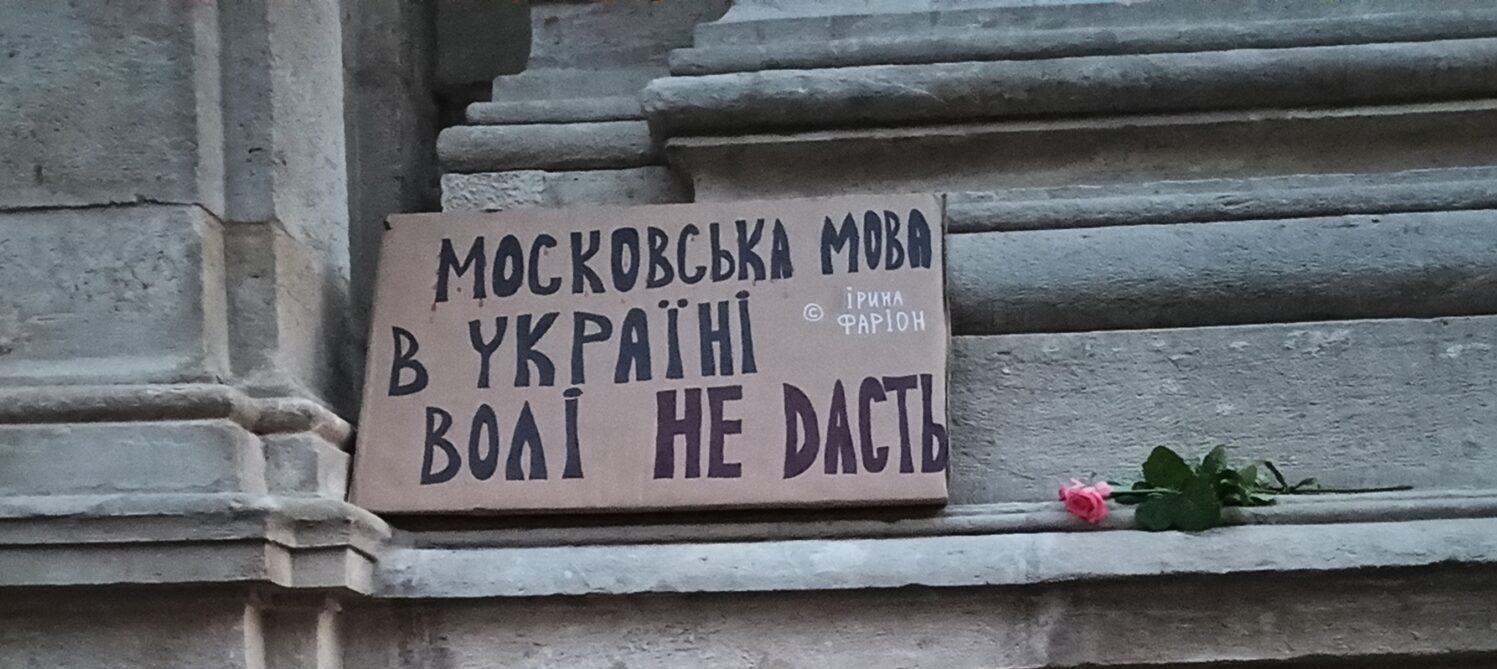 МОСКОВСЬКА МОВА
В УКРАЇНІ
© ІРИНА
ФАРІОН
ВОЛІ НЕ DАСТЬ